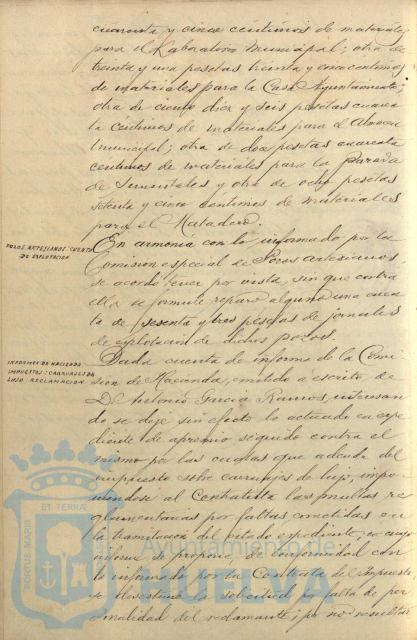 cuarenta y cinco centimos de materiales
para el Laboratorio Municipal; otra de
treinta y una pesetas treinta y cinco centimos
de materiales para la Casa Ayuntamiento;
otra de ciento diez y seis pesetas cuaren
ta centimos de materiales para el
municipal; otra de doce pesetas cuarenta
centimos de materiales para la Parada
de Sementales y otra de ocho pesetas
setenta y cinco centimos de materiales
para el Matadero.
POZOS ARTESIANOS: CUENTA
DE EXPLOTACION
En armonia con lo informado por la
Comision especial de Pozos artesianos,
se acordó tener por vista, sin que contra
ella se formule reparo alguno una cuen
ta de sesenta y tres pesetas de jornales
de explotacion de dichos pozos.
INFORMES DE HACIENDA
IMPUESTOS: CARRUAJES DE
LUJO RECLAMACION
Dada cuenta de informe de la Comi
sion de Hacienda, emitido á escrito de
D. Antonio Garcia Ramos, interesan
do se deje sin efecto lo actuado en expe
diente de apremio seguido contra el
mismo por las cuotas que adeuda del
impuesto sobre carruajes de lujo, impo
niendose al Contratista las multas re
glamentarias por faltas cometidas en
la tramitacion del citado expediente, en cuyo
informe se propone de conformidad con
lo informado por la Contrata del Impuesto
se desestime la solicitud por falta de per
sonalidad del reclamante, por no resultar
PORTUS MARIS ET TERRAE
Ayuntamiento de
HUELVA